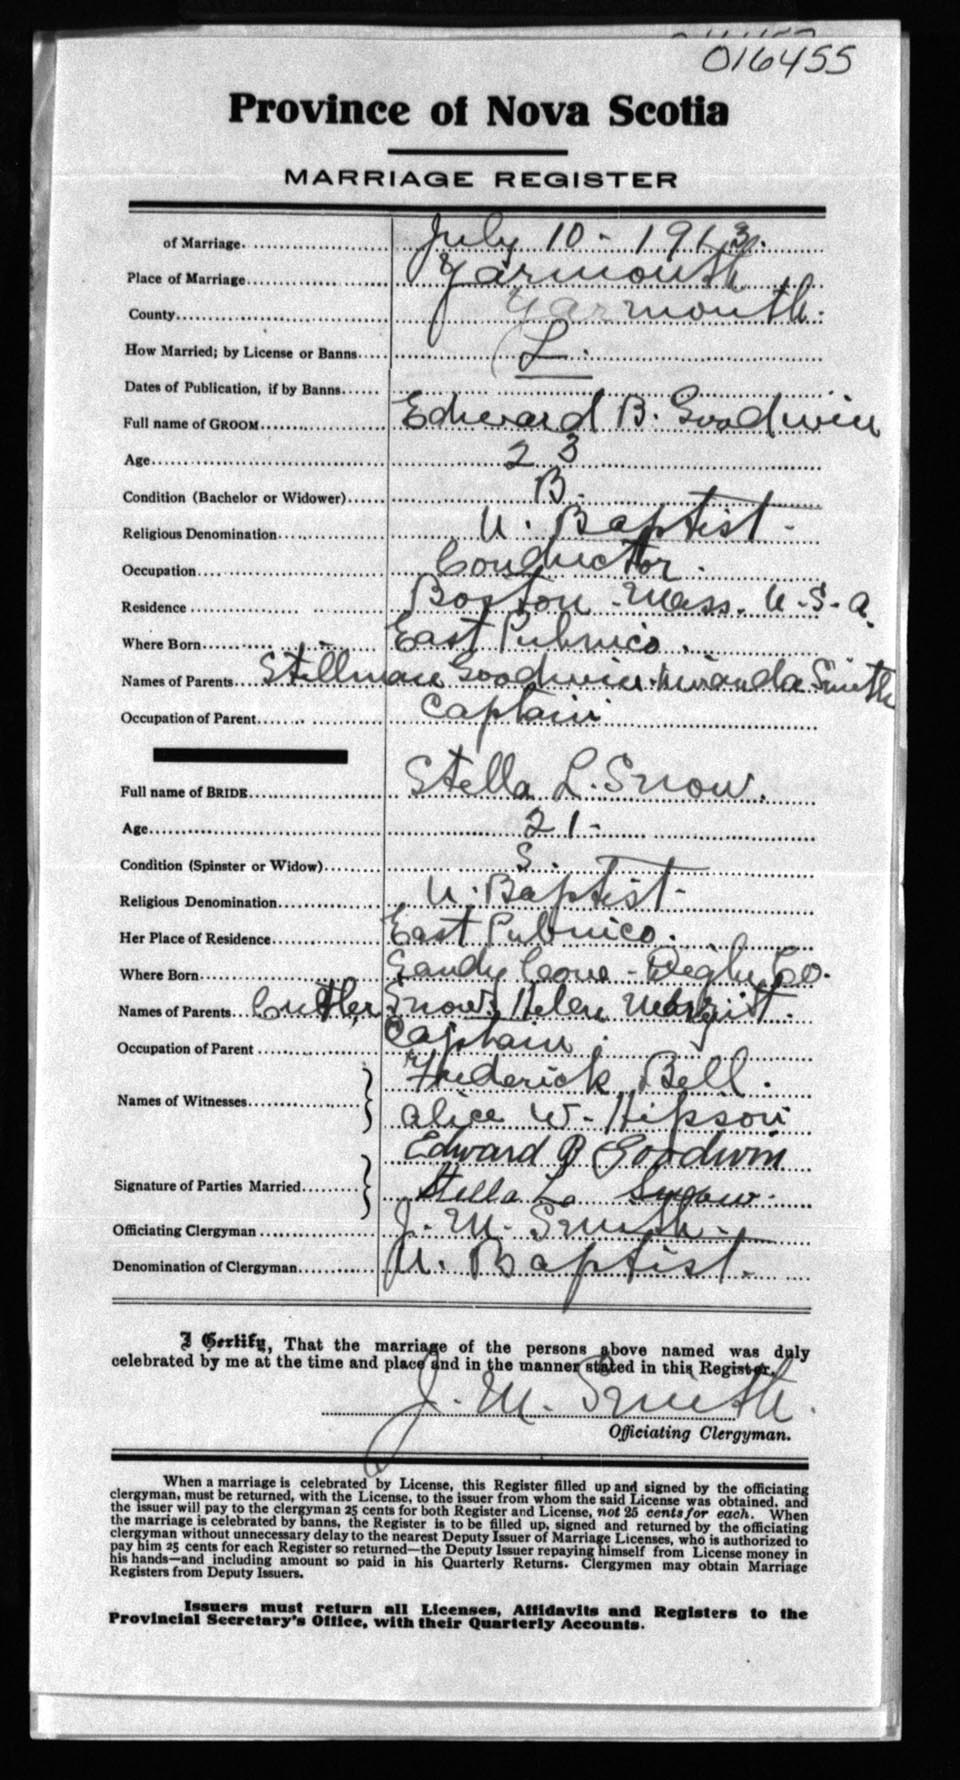 016455
Province of Nova Scotia
MARRIAGE REGISTER
of Marriage July 10 - 1913.
Place of Marriage Yarmouth
County Yarmouth.
How Married; by License or Banns L.
Dates of Publication, if by Banns
Full name of GROOM Edward B. Goodwin
Age 23
Condition (Bachelor or Widower) B.
Religious Denomination U. Baptist -
Occupation Conductor.
Residence Boston - Mass. U-S-A.
Where Born East Pubnico.
Names of Parents Stillman Goodwin. Miranda Smith
Occupation of Parent Captain
Full name of BRIDE Stella L. Snow.
Age 21 -
Condition (Spinster or Widow) S.
Religious Denomination U. Baptist -
Her Place of Residence East Pubnico.
Where Born Sandy Cove - Digby Co.
Names of Parents Cutler Snow, Helen
Occupation of Parent Captain.
Names of Witnesses Frederick Bell.
Alice W. Hipson
Signature of Parties Married Edward B Goodwin
Stella L.
Officiating Clergyman J. M. Smith.
Denomination of Clergyman U. Baptist.
I Certify, That the marriage of the persons above named was duly
celebrated by me at the time and place and in the manner stated in this Register.
J. M. Smith.
Officiating Clergyman.
When a marriage is celebrated by License, this Register filled up and signed by the officiating
clergyman, must be returned, with the License, to the issuer from whom the said License was obtained, and
the issuer will pay to the clergyman 25 cents for both Register and License, not 25 cents for each. When
the marriage is celebrated by banns, the Register is to be filled up, signed and returned by the officiating
clergyman without unnecessary delay to the nearest Deputy Issuer of Marriage Licenses, who is authorized to
pay him 25 cents for each Register so returned—the Deputy Issuer repaying himself from License money in
his hands—and including amount so paid in his Quarterly Returns. Clergymen may obtain Marriage
Registers from Deputy Issuers.
Issuers must return all Licenses, Affidavits and Registers to the
Provincial Secretary's Office, with their Quarterly Accounts.